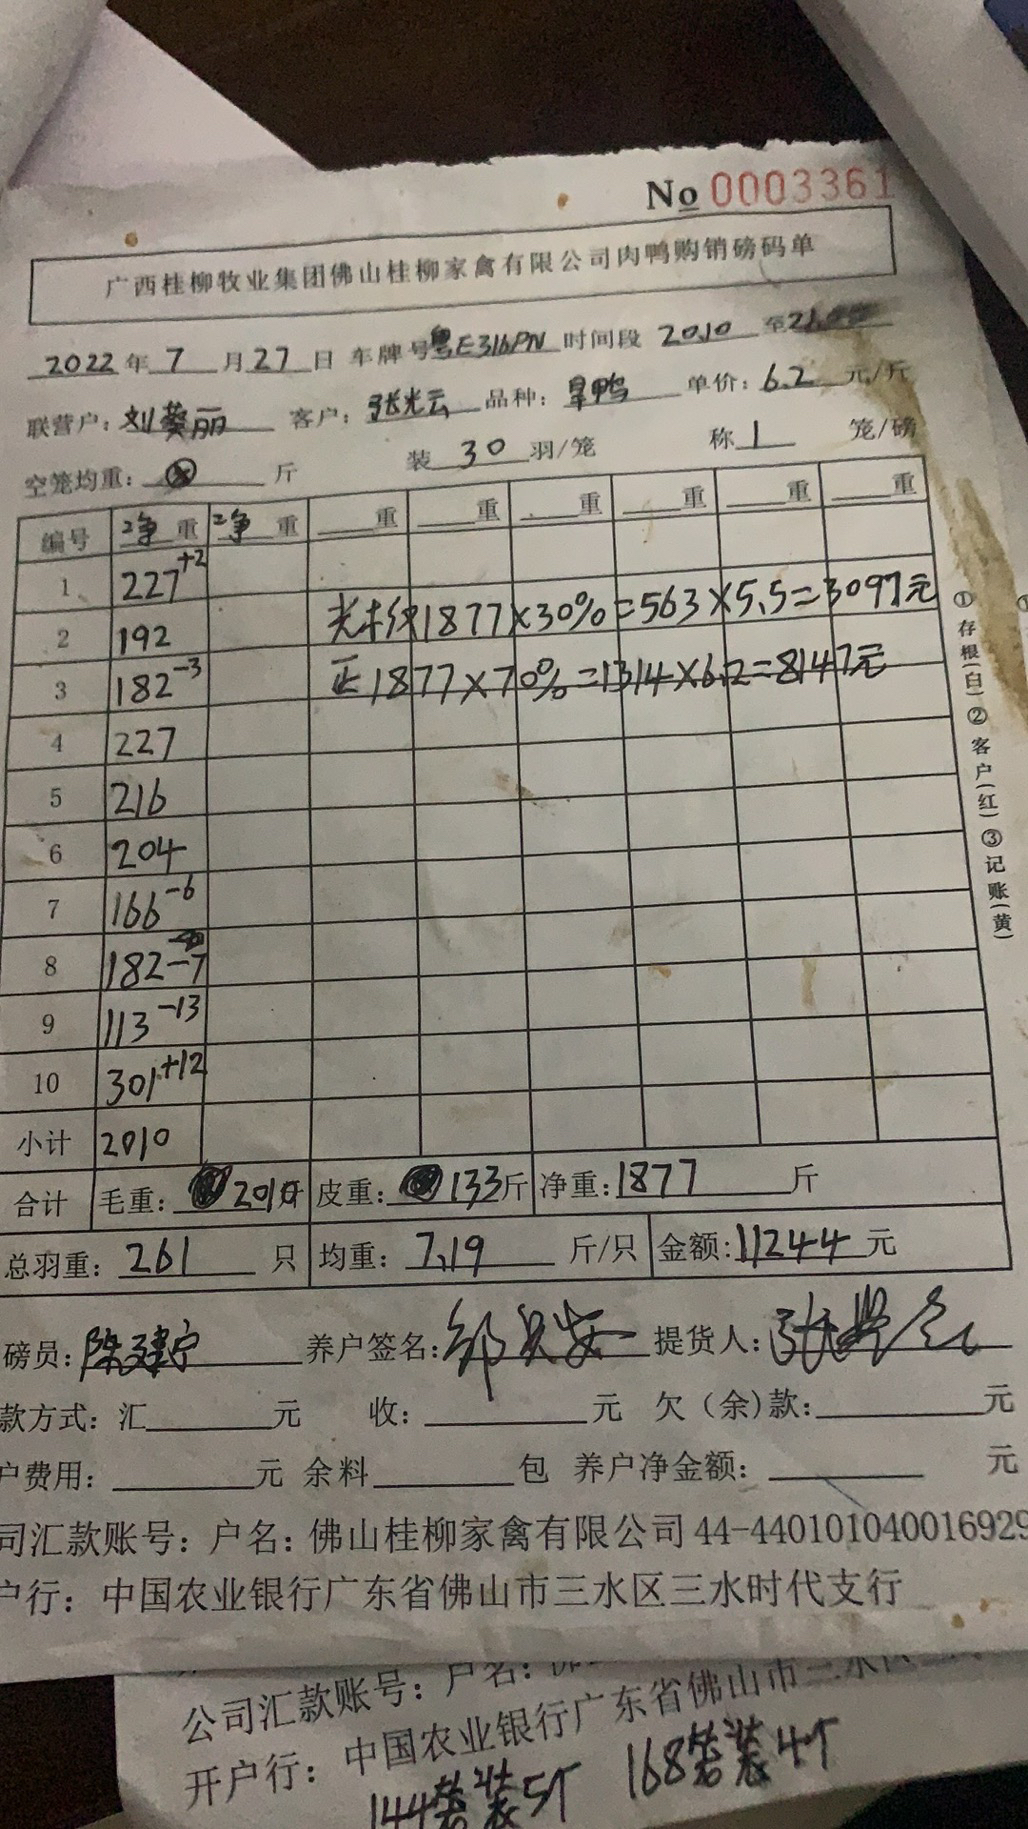 No 0003361
广西桂柳牧业集团佛山桂柳家禽有限公司肉鸭购销磅码单
2022年 7 月 27 日 车牌号 粤E316PN 时间段 20.10 至
联营户: 刘葵丽 客户: 张光云 品种: 旱鸭 单价: 6.2 元/斤
空笼均重: 斤 装 30 羽/笼 称 1 笼/磅
编号 净 重 净 重 重 重 重 重 重 重
1 227 +2
光 1877×30%=563×5.5=3097元
2 192
3 182 -3 正1877×70%=1314×6.2=8147元
4 227
5 216
6 204
7 166 -6
8 182 -7
9 113 -13
10 301 +12
小计 2010
合计 毛重: 2010斤 皮重: 133斤 净重: 1877 斤
总羽重: 261 只 均重: 7.19 斤/只 金额: 11244 元
磅员: 陈建宁 养户签名: 提货人:
款方式: 汇 元 收: 元 欠(余)款: 元
户费用: 元 余料 包 养户净金额: 元
司汇款账号: 户名: 佛山桂柳家禽有限公司 44-440101040016929
户行: 中国农业银行广东省佛山市三水区三水时代支行
①存根(白)②客户(红)③记账(黄)
公司汇款账号: 户名:
开户行: 中国农业银行广东省佛山市三水
144套装5个 168套装4个